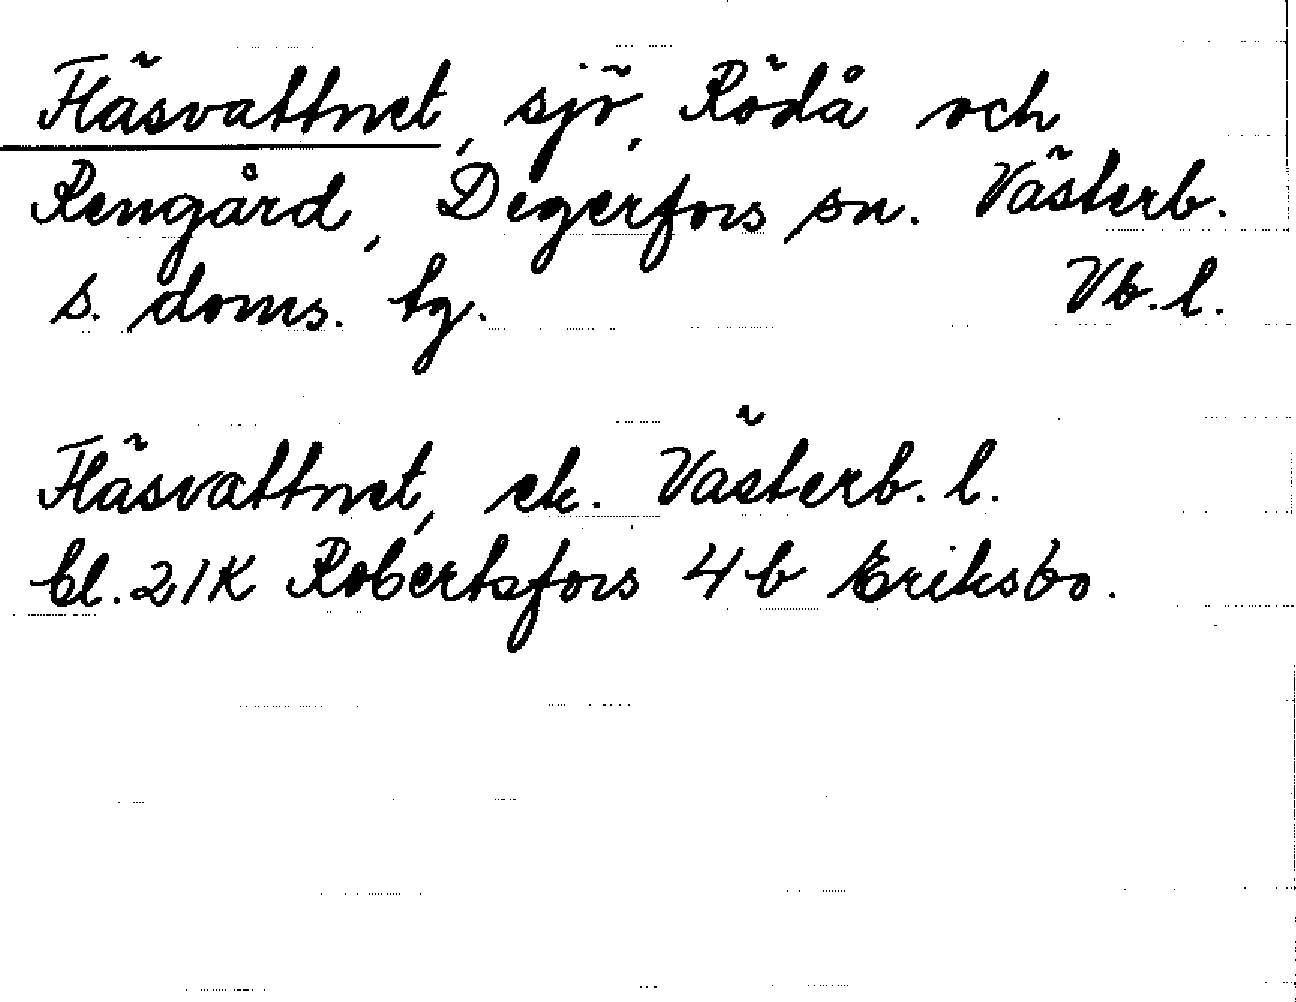 Fläsvattnet, sjö, Rödå och
Rengård, Degerfors sn. Västerb.
s. doms. tg. Vb. l.
Fläsvattnet, ek. Västerb. l.
bl. 21K Robertsfors 4 b Eriksbo.